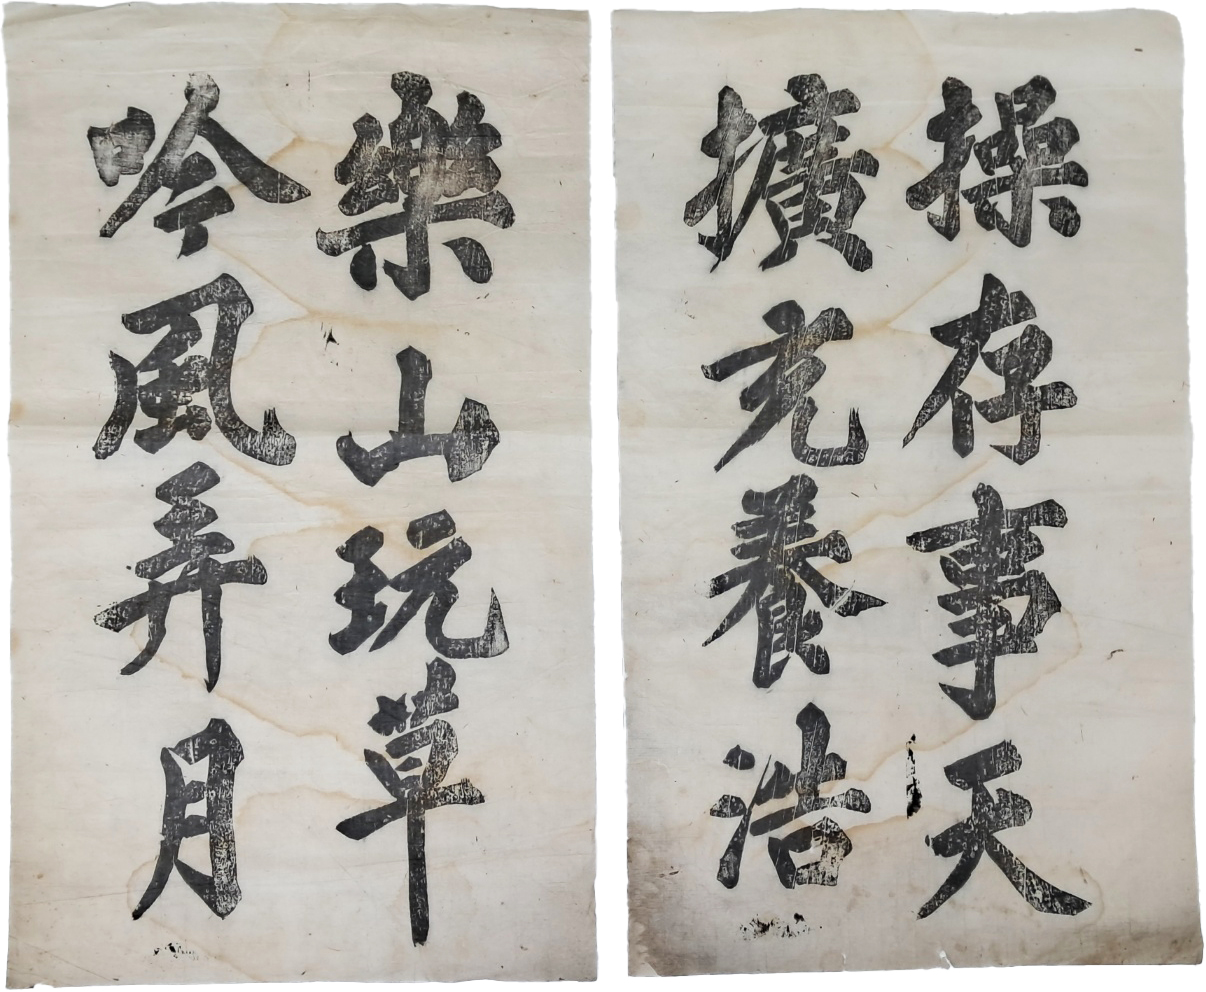 操存事天
擴充養浩
樂山玩草
吟風弄月